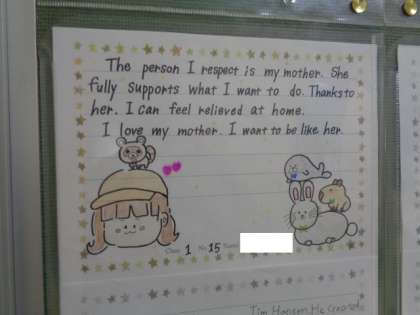 The person I respect is my mother. She
fully supports what I want to do. Thanks to
her. I can feel relieved at home.
I love my mother. I want to be like her.
Class 1 No. 15 Name